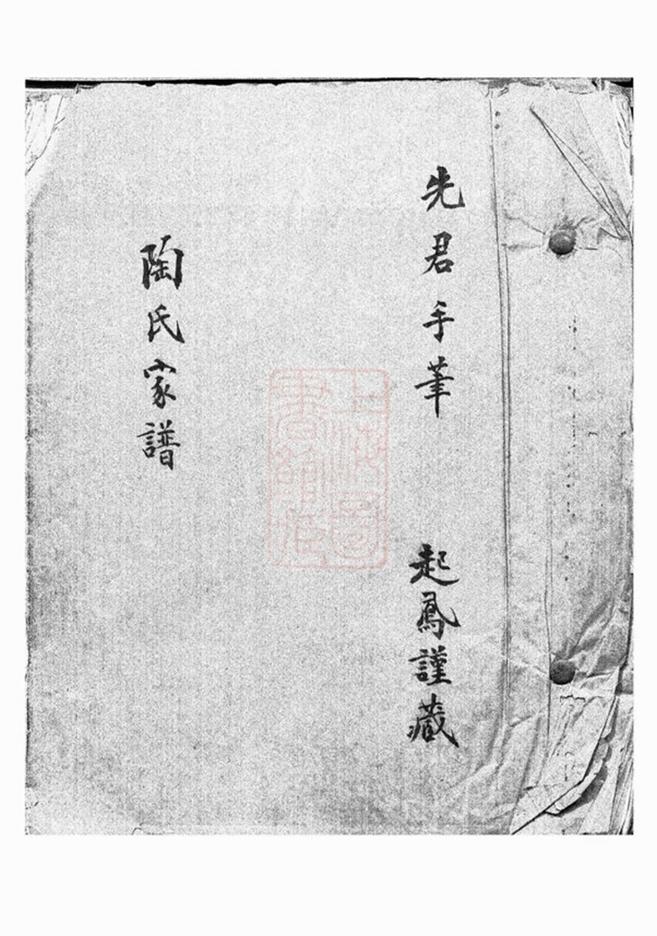 先君手筆
起鳳謹藏
陶氏家譜
上海圖書館藏